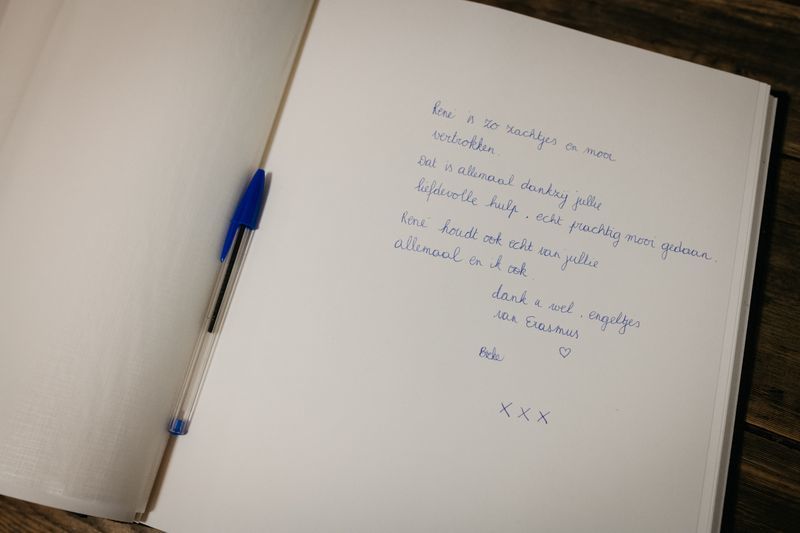 René is zo zachtjes en mooi
vertrokken.
Dat is allemaal dankzij jullie
liefdevolle hulp. echt prachtig mooi gedaan.
René houdt ook echt van jullie
allemaal en ik ook.
dank u wel, engeltjes
van Erasmus
♡
X X X